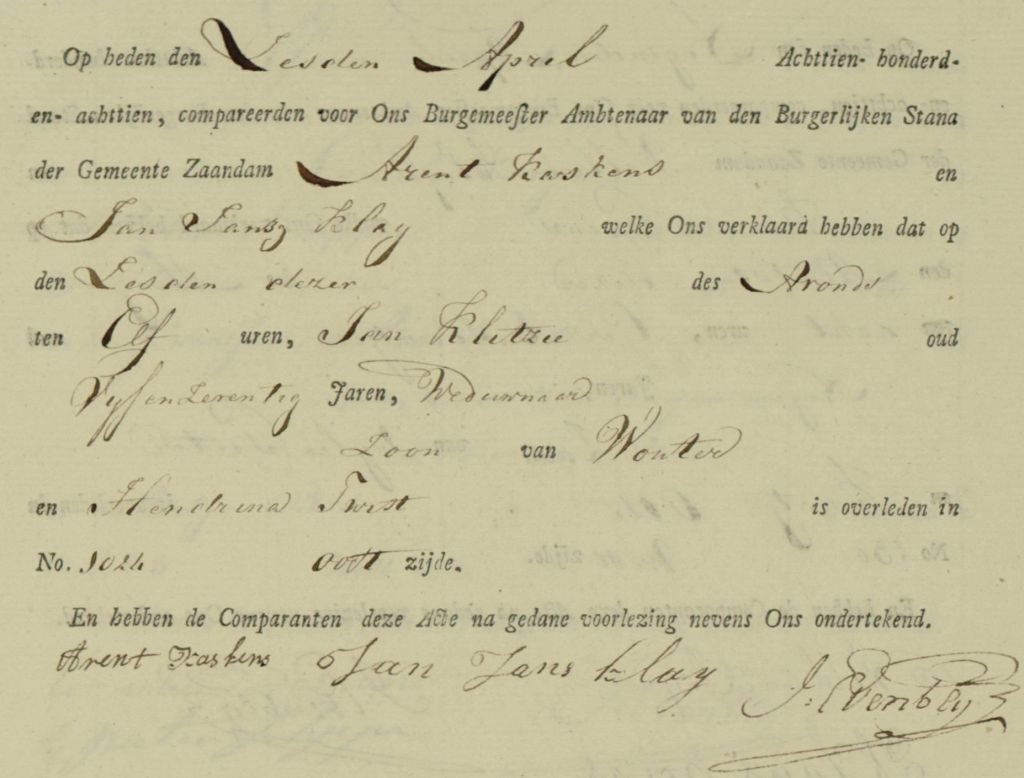 Op heden den Zesden April Achttien-honderd-
en-achttien, compareerden voor Ons Burgemeester Ambtenaar van den Burgerlijken Stana
der Gemeente Zaandam Arent Kaskens en
Jan Jansz Klay welke Ons verklaard hebben dat op
den Zesden dezer des Avonds
ten Elf uren, Jan Kletzee oud
Vyfenzeventig Jaren, Weduwnaar
Zoon van Wouter
en Hendrina Twist is overleden in
No. 1024 oost zijde.
En hebben de Comparanten deze Acte na gedane voorlezing nevens Ons ondertekend.
Arent Kaskens Jan Jans Klay J: Evenbly